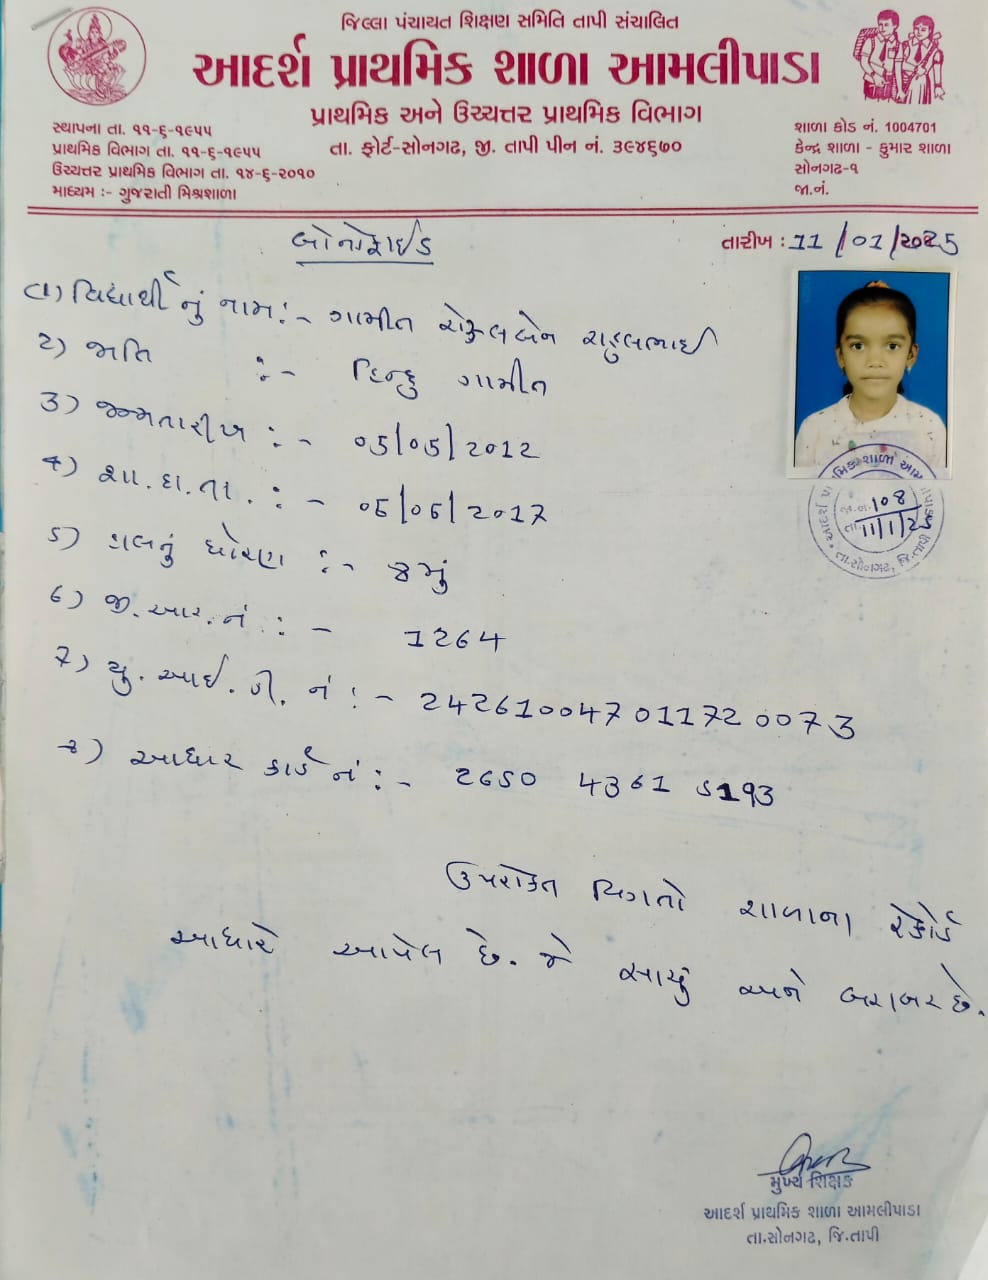 જિલ્લા પંચાયત શિક્ષણ સમિતિ તાપી સંચાલિત
આદર્શ પ્રાથમિક શાળા આમલીપાડા
પ્રાથમિક અને ઉચ્ચત્તર પ્રાથમિક વિભાગ
તા. ફોર્ટ-સોનગઢ, જી. તાપી પીન નં. ૩૯૪૬૭૦
સ્થાપના તા. ૧૧-૬-૧૯૫૫
પ્રાથમિક વિભાગ તા. ૧૧-૬-૧૯૫૫
ઉચ્ચત્તર પ્રાથમિક વિભાગ તા. ૧૪-૬-૨૦૧૦
માધ્યમ :- ગુજરાતી મિશ્રશાળા
શાળા કોડ નં. 1004701
કેન્દ્ર શાળા - કુમાર શાળા
સોનગઢ-૧
જા.નં.
બોનોફાઈડ
તારીખ : 11/01/2025
૧) વિદ્યાર્થીનું નામ :- ગામીત રાહુલભાઈ
2) જાતિ :- હિન્દુ ગામીત
3) જન્મતારીખ :- 05/05/2012
4) શા.દા.તા. :- 05/06/2017
5) હાલનું ધોરણ :- 8મું
6) જી.આર.નં :- 1264
7) યુ.આઈ.ડી. નં :- 242610047011720073
૪) આધાર કાર્ડ નં :- 2650 4361 5193
ઉપરોક્ત વિગતો શાળાના રેકોર્ડ
આધારે આપેલ છે. જે સાચું અને બરાબર છે.
આદર્શ પ્રાથમિક શાળા આમલીપાડા
જા.નં. 108
તા. 11/1/25
તા.સોનગઢ, જિ.તાપી
મુખ્ય શિક્ષક
આદર્શ પ્રાથમિક શાળા આમલીપાડા
તા.સોનગઢ, જિ.તાપી